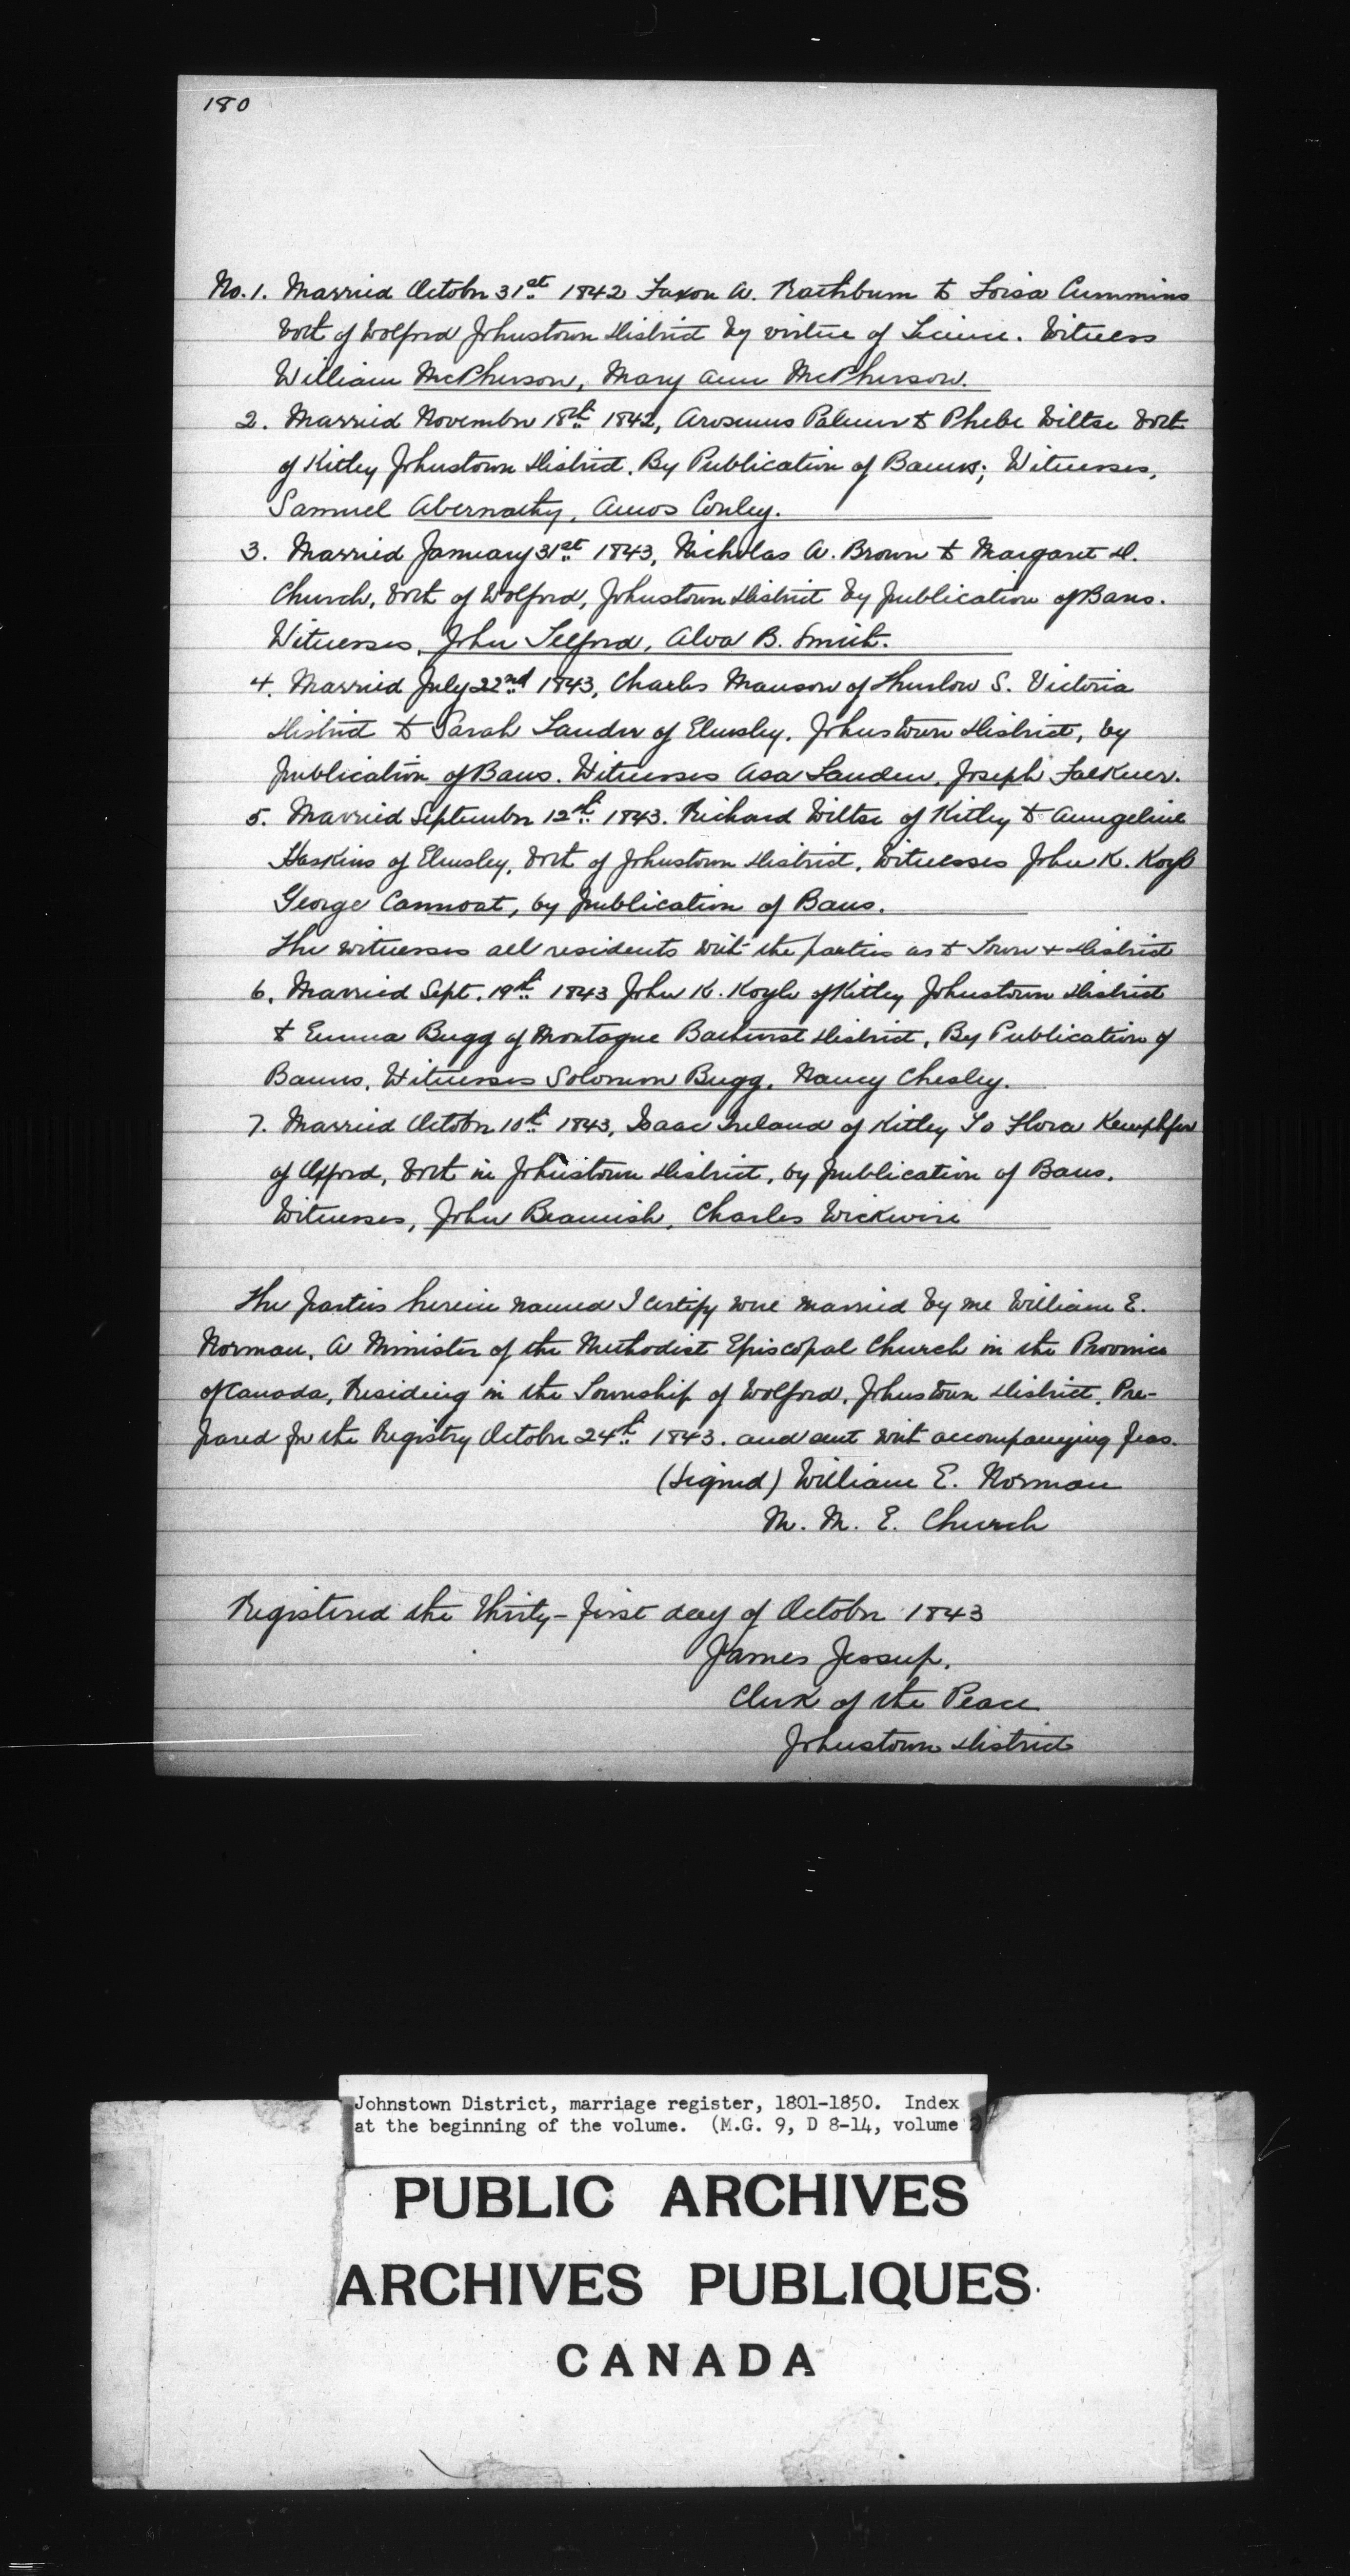 180
No. 1. Married October 31st 1842 Faxon A. Rathburn to Loisa Cummins
both of Wolford Johnstown District by virtue of Licence. Witness
William McPherson, Mary Ann McPherson.
2. Married November 18th 1842, Arosmus Palmer to Phebe Wiltse both
of Kitley Johnstown District. By Publication of Banns; Witnesses,
Samuel Abernathy, Amos Conley.
3. Married January 31st 1843, Nicholas A. Brown to Margaret D.
Church, both of Wolford, Johnstown District by publication of Bans.
Witnesses, John Telford, Alva B. Smith.
4. Married July 22nd 1843, Charles Manson of Thurlow S. Victoria
District to Sarah Lander of Elmsley, Johnstown District, by
publication of Bans. Witnesses Asa Landen, Joseph Falkner.
5. Married September 12th 1843. Richard Wiltse of Kitley to Anngeline
Haskins of Elmsley, both of Johnstown District, Witnesses John K. Koyl
George Cannoat, by publication of Bans.
The witnesses all residents with the parties as to Town & District
6. Married Sept. 19th 1843 John K. Koyle of Kitley Johnstown District
to Emma Bugg of Montague Bathurst District, By Publication of
Banns, Witnesses Solomon Bugg, Nancy Chesley.
7. Married October 10th 1843, Isaac Ireland of Kitley To Flora Kemphfer
of Oxford, both in Johnstown District, by publication of Bans.
Witnesses, John Beamish, Charles Wickwire
The parties herein named I certify were married by me William E.
Norman, A Minister of the Methodist Episcopal Church in the Province
of Canada, Residing in the Township of Wolford, Johnstown District, Pre-
pared for the Registry October 24th 1843. and sent with accompanying fees.
(Signed) William E. Norman
M. M. E. Church
Registered the thirty-first day of October 1843
James Jessup,
Clerk of the Peace
Johnstown District
Johnstown District, marriage register, 1801-1850. Index
at the beginning of the volume. (M.G. 9, D 8-14, volume 2)
PUBLIC ARCHIVES
ARCHIVES PUBLIQUES
CANADA